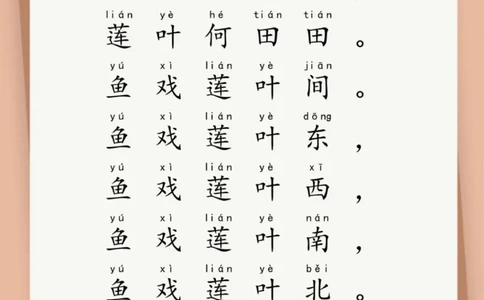 lián yè hé tián tián
莲叶何田田。
yú xì lián yè jiān
鱼戏莲叶间。
yú xì lián yè dōng
鱼戏莲叶东，
yú xì lián yè xī
鱼戏莲叶西，
yú xì lián yè nán
鱼戏莲叶南，
yú xì lián yè běi
鱼戏莲叶北。